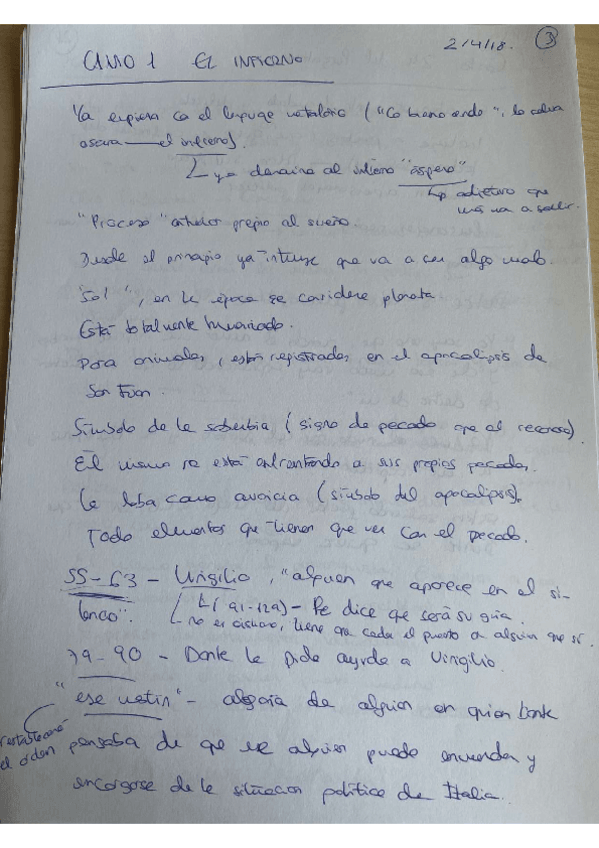 2/4/18. 3
CANTO 1 EL INFIERNO
Ya empieza con el lenguaje metafórico ("Co buena onda", la selva
oscura — el infierno).
ya denomina al infierno "áspero"
adjetivo que
más va a salir.
"Proceso" entrador propio al sueño.
Desde el principio ya intuye que va a ser algo malo.
"Sol", en la época se considera planeta.
Está totalmente humanizado.
Para animales, están registrados en el apocalipsis de
San Juan.
Símbolo de la soberbia (signo de pecado que al
Él mismo se está enfrentando a sus propios pecados.
La loba como avaricia (símbolo del apocalipsis).
Todo elementos que tienen que ver con el pecado.
55-63 - Virgilio, "alguien que aparece en el si-
lencio". (91-129) - Le dice que será su guía.
no es cristiano, tiene que ceder el puesto a alguien que sí.
79-90 - Dante le pide ayuda a Virgilio.
"ese mastín" - alegoría de alguien en quien Dante
restablecerá
el orden
pensaba de que ese alguien puede enmendar y
encargarse de la situación política de Italia.